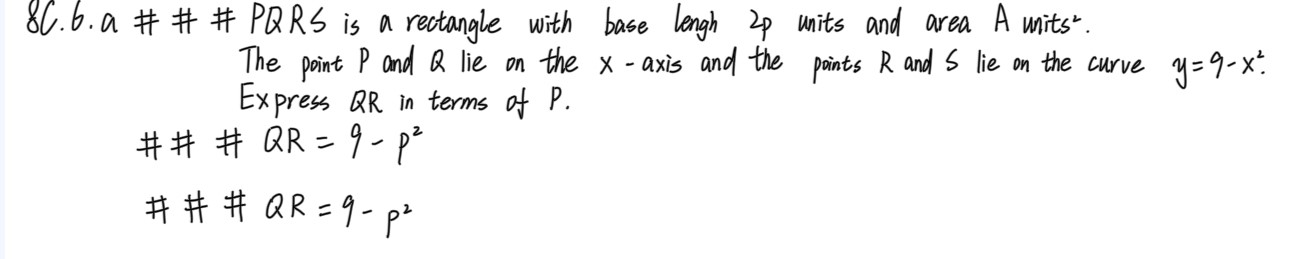 8C.6.a # # # PQRS is a rectangle with base lengh 2p units and area A units².
The point P and Q lie on the x-axis and the points R and S lie on the curve y=9-x².
Express QR in terms of P.
# # # QR = 9-p²
# # # QR = 9-p²